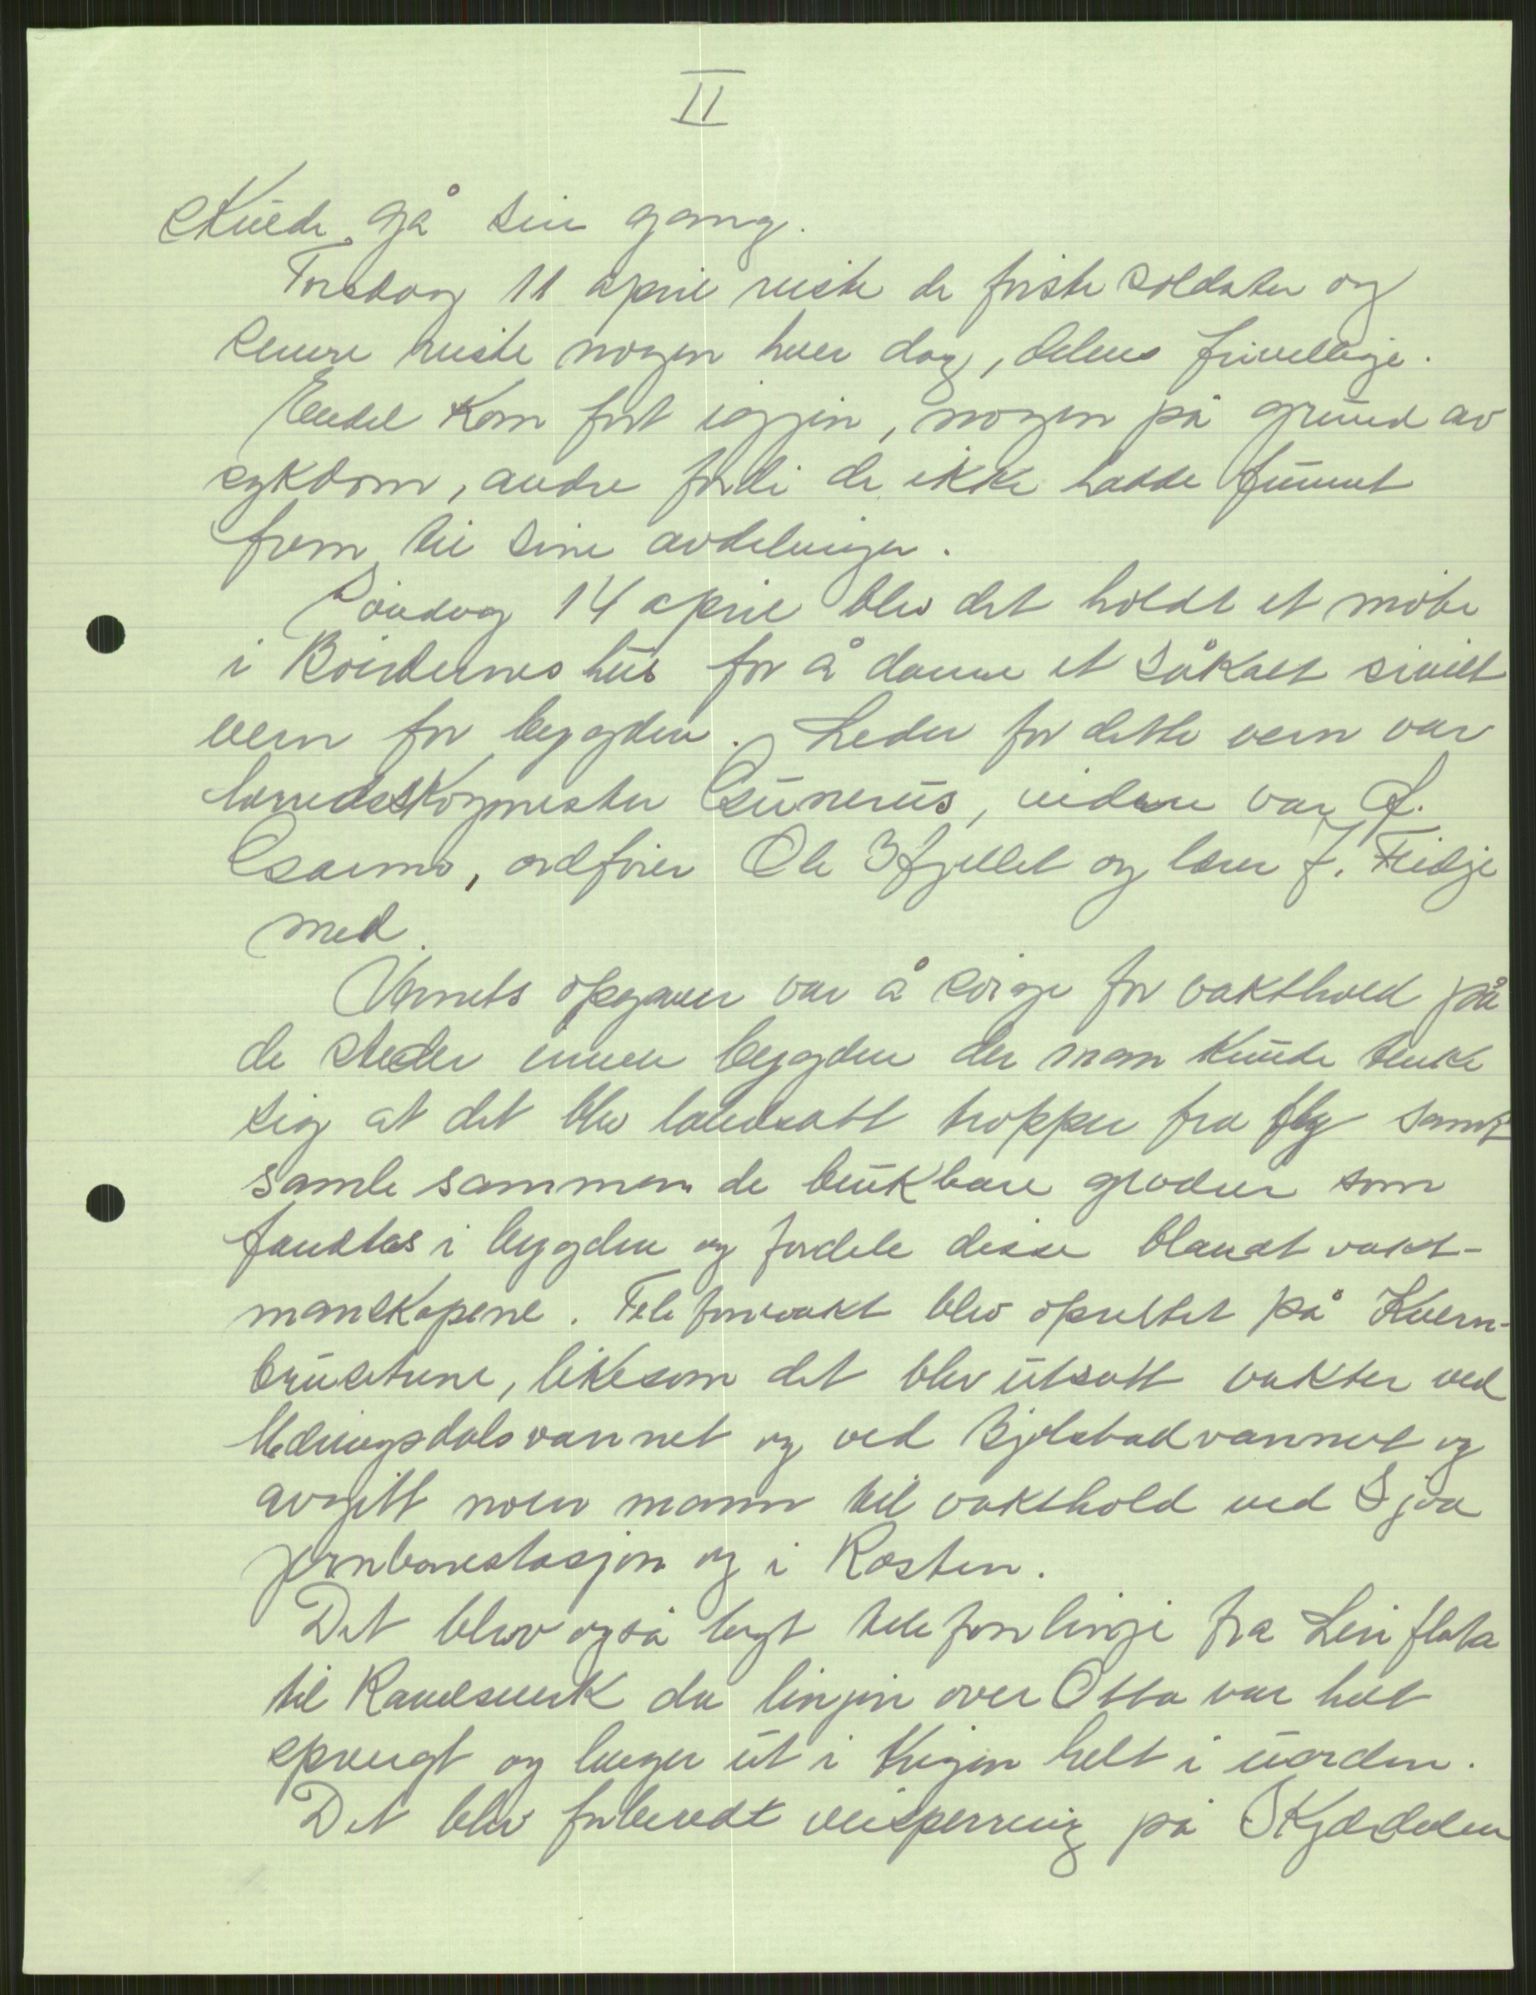 II
skulde gå sin gang.
Torsdag 11 april reiste de første soldater og
senere reiste nogen hver dag, delens frivellige.
Endel kom fort igjen, nogen på grund av
sykdom, andre fordi de ikke hadde funnet
frem til sine avdelinger.
Søndag 14 april blev det holdt et møte
i Bøndernes hus for å danne et såkalt sivilt
vern for bygden. Leder for dette vern var
herredsskogmester Gunerus, videre var
ordfører Ole Øfjellet og lærer J. Feidje
med.
Vernets opgaver var å sørge for vakthold på
de steder innen bygden der man kunde tenke
sig at det blev landsatt tropper fra fly samt
samle sammen de brukbare geværer som
fandtes i bygden og fordele disse blandt vakt-
manskapene. Telefonvakt blev oprettet på Kvern-
brusetrene, likesom det blev utsatt vakter ved
vannet og ved Bjølstadvannet og
avgitt noen mann til vakthold ved Sjoa
jernbanestasjon og i Rosten.
Det blev også lagt telefonlinje fra Leirflata
til Randsverk da linjen over Otta var helt
sprengt og lenger ut i krigen helt i uorden.
Det blev forberedt veisperring på